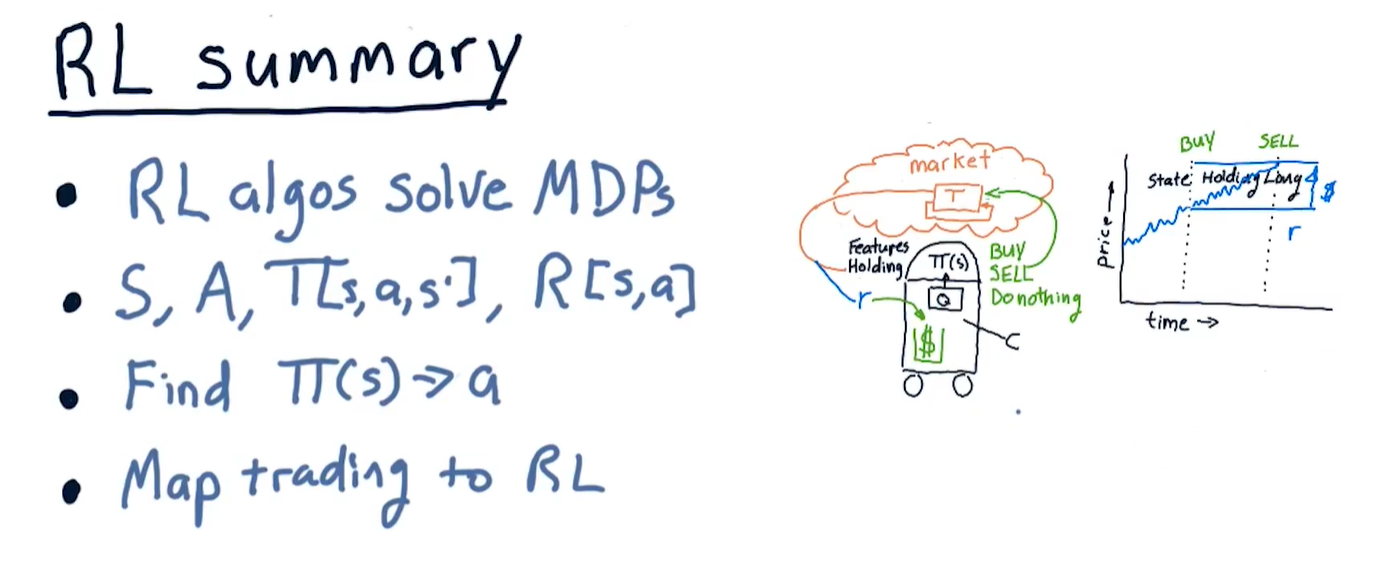 RL summary
• RL algos solve MDPs
• S, A, T[s,a,s'], R[s,a]
• Find π(s) → a
• Map trading to RL
market
T
Features
Holding
π(s)
BUY
SELL
Do nothing
Q
r
$
C
BUY SELL
State: Holding Long
$
r
price →
time →